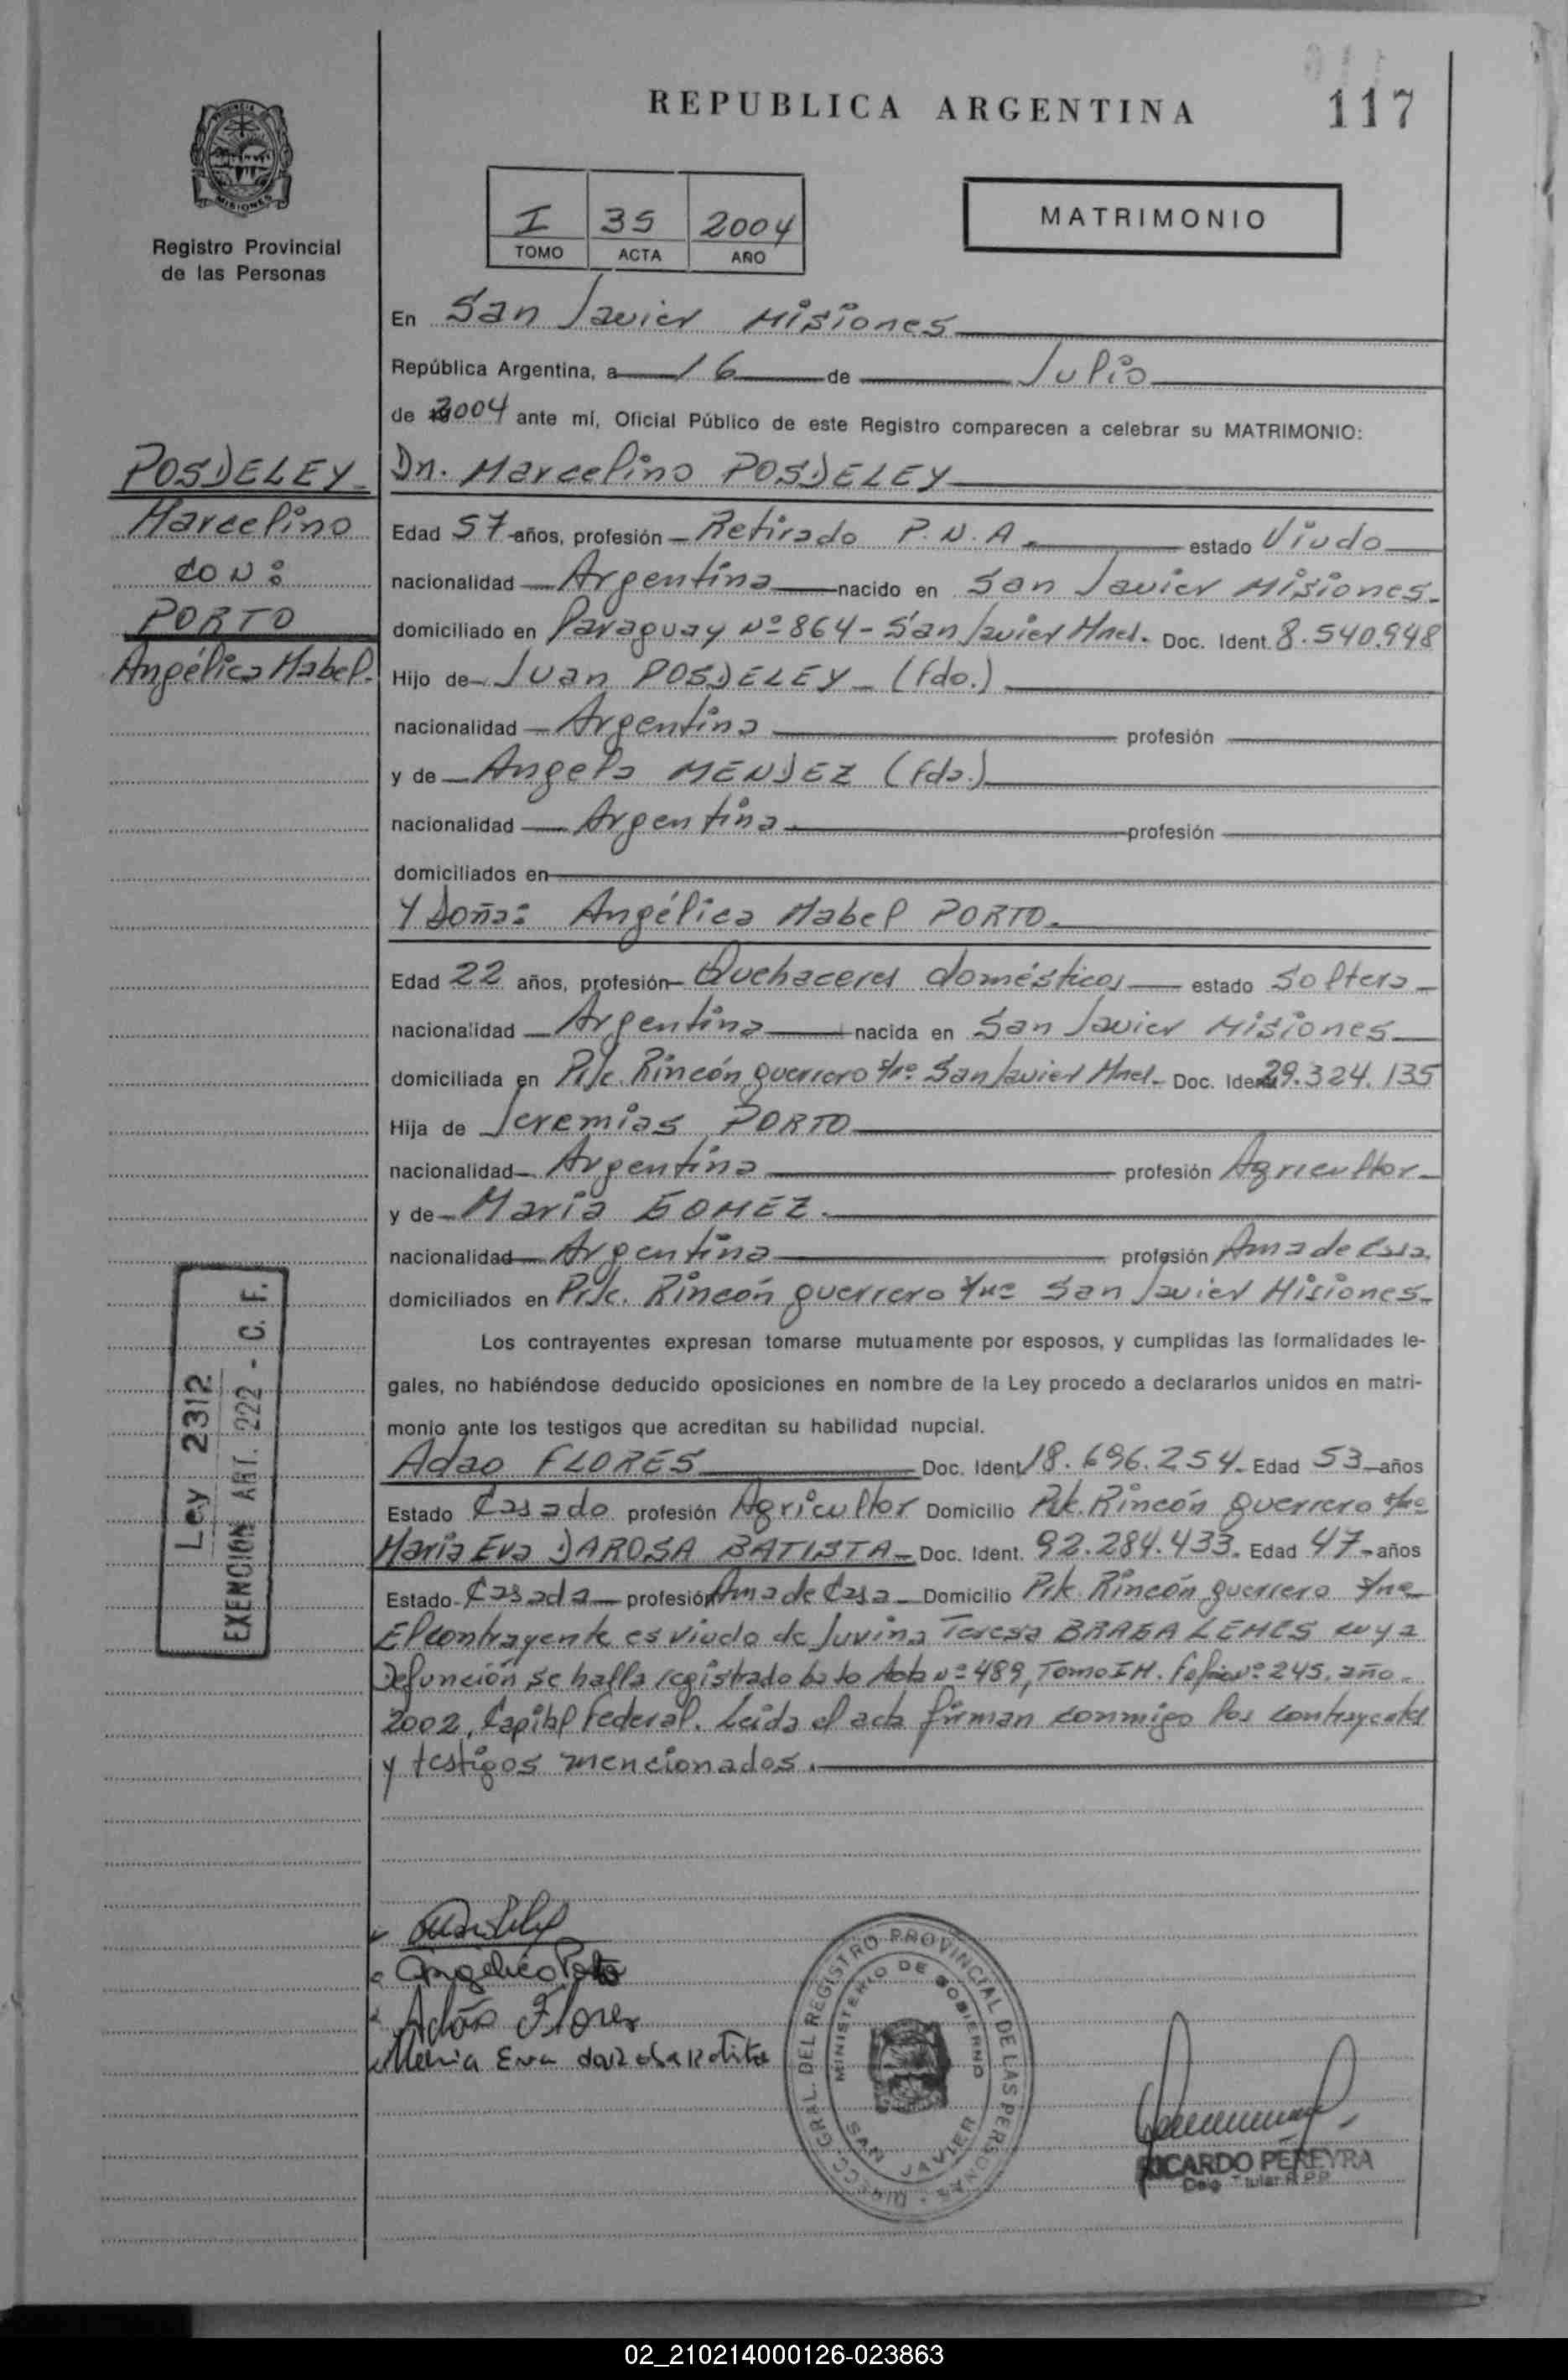 REPUBLICA ARGENTINA
117
PROVINCIA
MISIONES
Registro Provincial
de las Personas
I 35 2004
TOMO ACTA AÑO
MATRIMONIO
En San Javier Misiones
República Argentina, a 16 de Julio
de 2004 ante mí, Oficial Público de este Registro comparecen a celebrar su MATRIMONIO:
POSDELEY
Marcelino
CON:
PORTO
Angélica Mabel.
Dn. Marcelino POSDELEY
Edad 57 años, profesión Retirado P.N.A. estado Viudo
nacionalidad Argentina nacido en San Javier Misiones.
domiciliado en Paraguay Nº 864 - San Javier Mnes. Doc. Ident. 8.540.948
Hijo de Juan POSDELEY (fdo.)
nacionalidad Argentina profesión
y de Angela MENDEZ (fda.)
nacionalidad Argentina profesión
domiciliados en
Y Doña: Angélica Mabel PORTO.
Edad 22 años, profesión Quehaceres domésticos estado Soltera
nacionalidad Argentina nacida en San Javier Misiones
domiciliada en Pje. Rincón guerrero s/nº San Javier Mnes. Doc. Ident. 29.324.135
Hija de Jeremias PORTO
nacionalidad Argentina profesión Agricultor
y de Maria GOMEZ.
nacionalidad Argentina profesión Ama de Casa.
domiciliados en Pje. Rincón guerrero s/nº San Javier Misiones.
Los contrayentes expresan tomarse mutuamente por esposos, y cumplidas las formalidades le-
gales, no habiéndose deducido oposiciones en nombre de la Ley procedo a declararlos unidos en matri-
monio ante los testigos que acreditan su habilidad nupcial.
Adao FLORES Doc. Ident. 18.696.254. Edad 53 años
Estado Casado profesión Agricultor Domicilio Pje. Rincón guerrero s/nº
Maria Eva DAROSA BATISTA Doc. Ident. 92.284.433. Edad 47 años
Estado Casada profesión Ama de Casa Domicilio Pje. Rincón guerrero s/nº
El contrayente es viudo de Juvina Teresa BRAGA LEMES cuya
Defunción se halla registrado bajo Acta Nº 489, Tomo IM. folio Nº 245, año
2002, Capital Federal. Leída el acta firman conmigo los contrayentes
y testigos mencionados.
Ley 2312
EXENCION ART. 222 - C. F.
Angélica Porto
Adão Flores
Maria Eva
DIRECC. GRAL. DEL REGISTRO PROVINCIAL DE LAS PERSONAS
MINISTERIO DE GOBIERNO
SAN JAVIER
RICARDO PEREYRA
Deleg. Titular R.P.P.
02_210214000126-023863